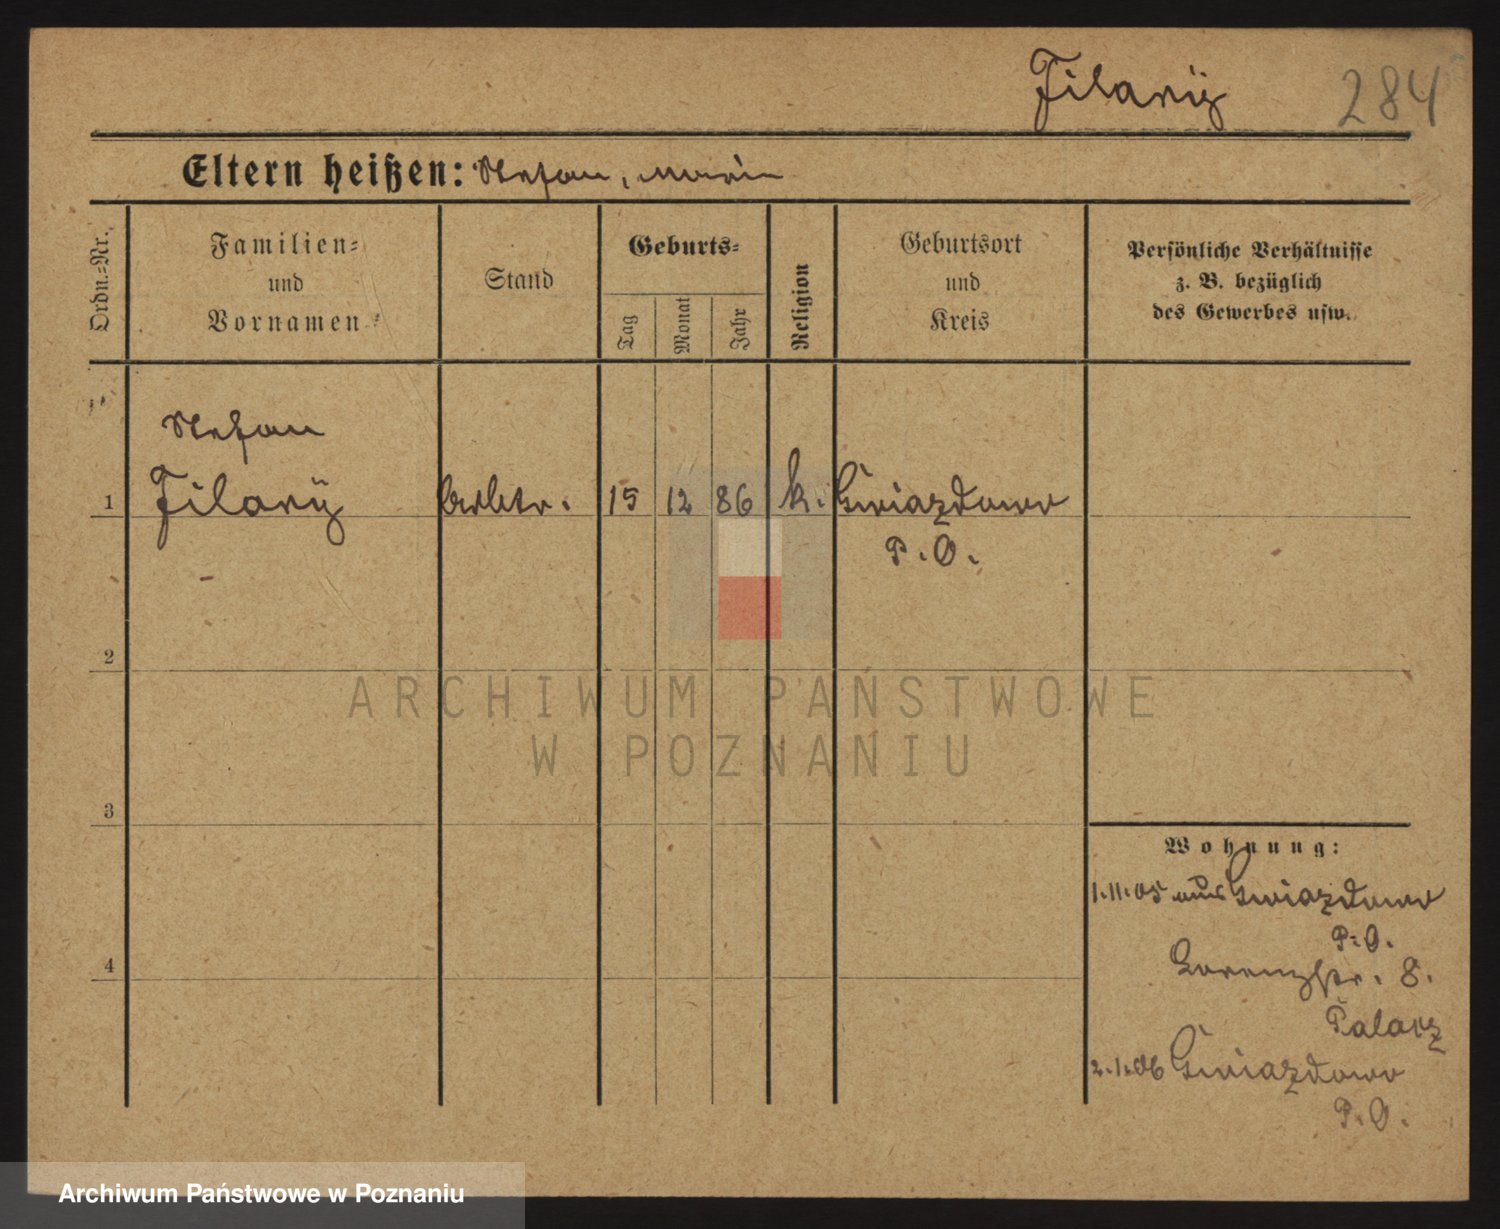 Filarÿ 284
Eltern heißen: Stefan, Marie
Ordn.-Nr.
Familien-
und
Vornamen
Stand
Geburts-
Tag
Monat
Jahr
Religion
Geburtsort
und
Kreis
Persönliche Verhältnisse
z. B. bezüglich
des Gewerbes usw.
Stefan
1 Filarÿ Arbtr. 15 12 86 k. Gwiazdowo
P. O.
2
ARCHIWUM PAŃSTWOWE
W POZNANIU
3
Wohnung:
1.11.05 aus Gwiazdowo
P. O.
Lorenzstr. 8.
Palacz
4
2.1.06 Gwiazdowo
P. O.
Archiwum Państwowe w Poznaniu